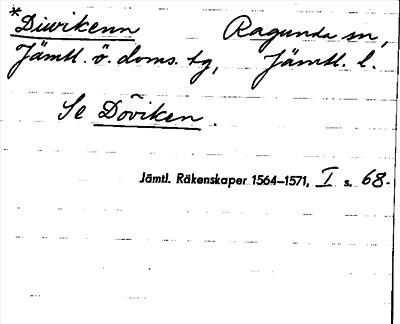 *Diwikenn Ragunda sn,
Jämtl. ö. doms. tg, Jämtl. l.
Se Döviken.
Jämtl. Räkenskaper 1564–1571, I s. 68.